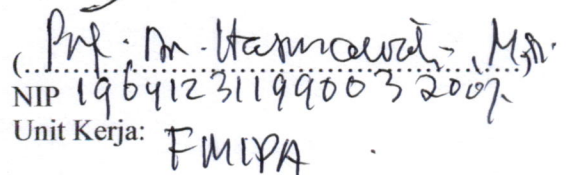 (Prof. Dr. Hasnawati, M.Si.)
NIP 196412311990032007.
Unit Kerja: FMIPA